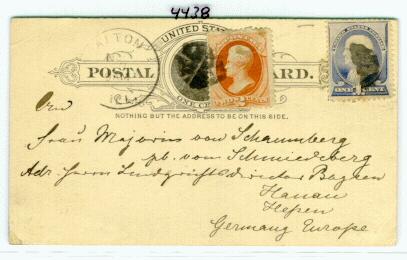 4438
ALTON
ILL.
UNITED STA
POSTAL
ARD.
ONE CE
ONE CENT
NOTHING BUT THE ADDRESS TO BE ON THIS SIDE.
An
Frau Majorin von Schaumberg
gb. von Schmiedeberg
Adr. Herrn Landgerichtsdirector
Hanau
Hessen
Germany Europe